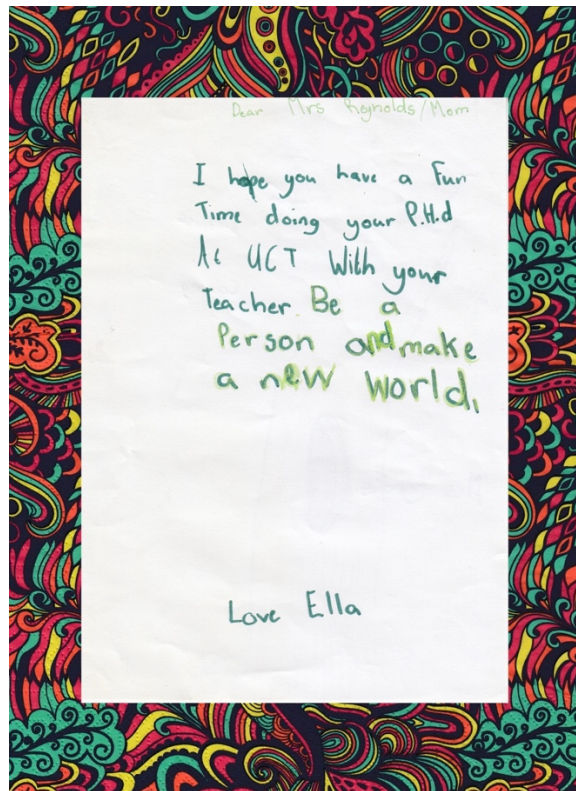 Dear Mrs Reynolds/Mom
I hope you have a Fun
Time doing your P.H.d
At UCT With your
Teacher Be a
Person and make
a new World.
Love Ella